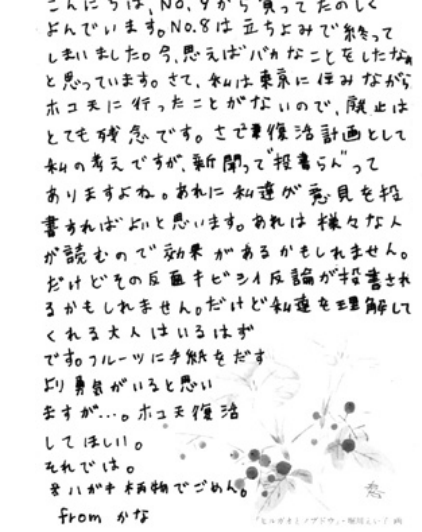 こんにちは、No.9から買ってたのしく
よんでいます。No.8は立ちよみで終って
しまいました。今、思えばバカなことをしたなぁ
と思っています。さて、私は東京に住みながら
ホコ天に行ったことがないので、廃止は
とても残念です。さて復活計画として
私の考えですが、新聞って"投書らん"って
ありますよね。あれに私達が意見を投
書すればよいと思います。あれは様々な人
が読むので効果があるかもしれません。
だけどその反面キビシイ反論が投書され
るかもしれません。だけど私達を理解して
くれる大人はいるはず
です。フルーツに手紙をだす
より勇気がいると思い
ますが…。ホコ天復活
してほしい。
それでは。
P.S.ハガキ柄物でごめん。
from かな
「ヒルガオとノブドウ」・堀川えい子 画